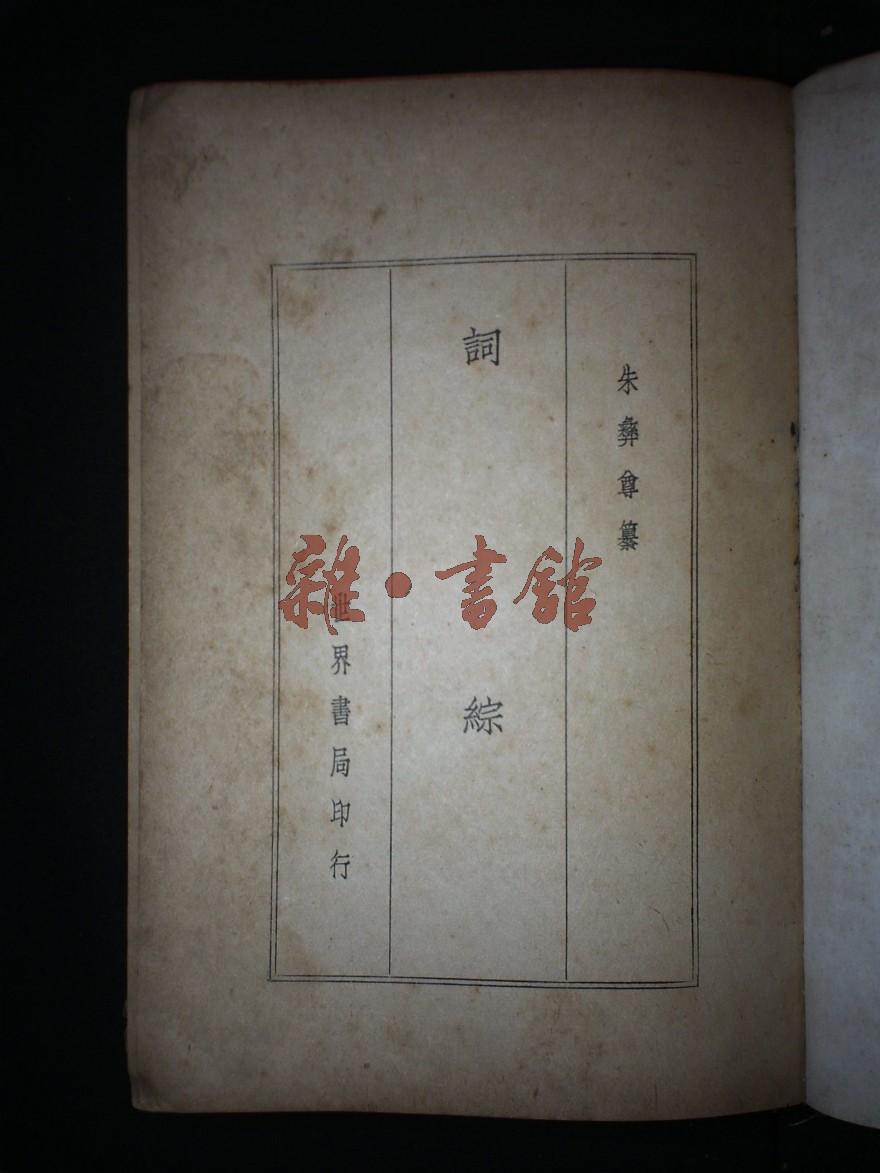 朱彝尊纂
詞綜
世界書局印行
雜·書館